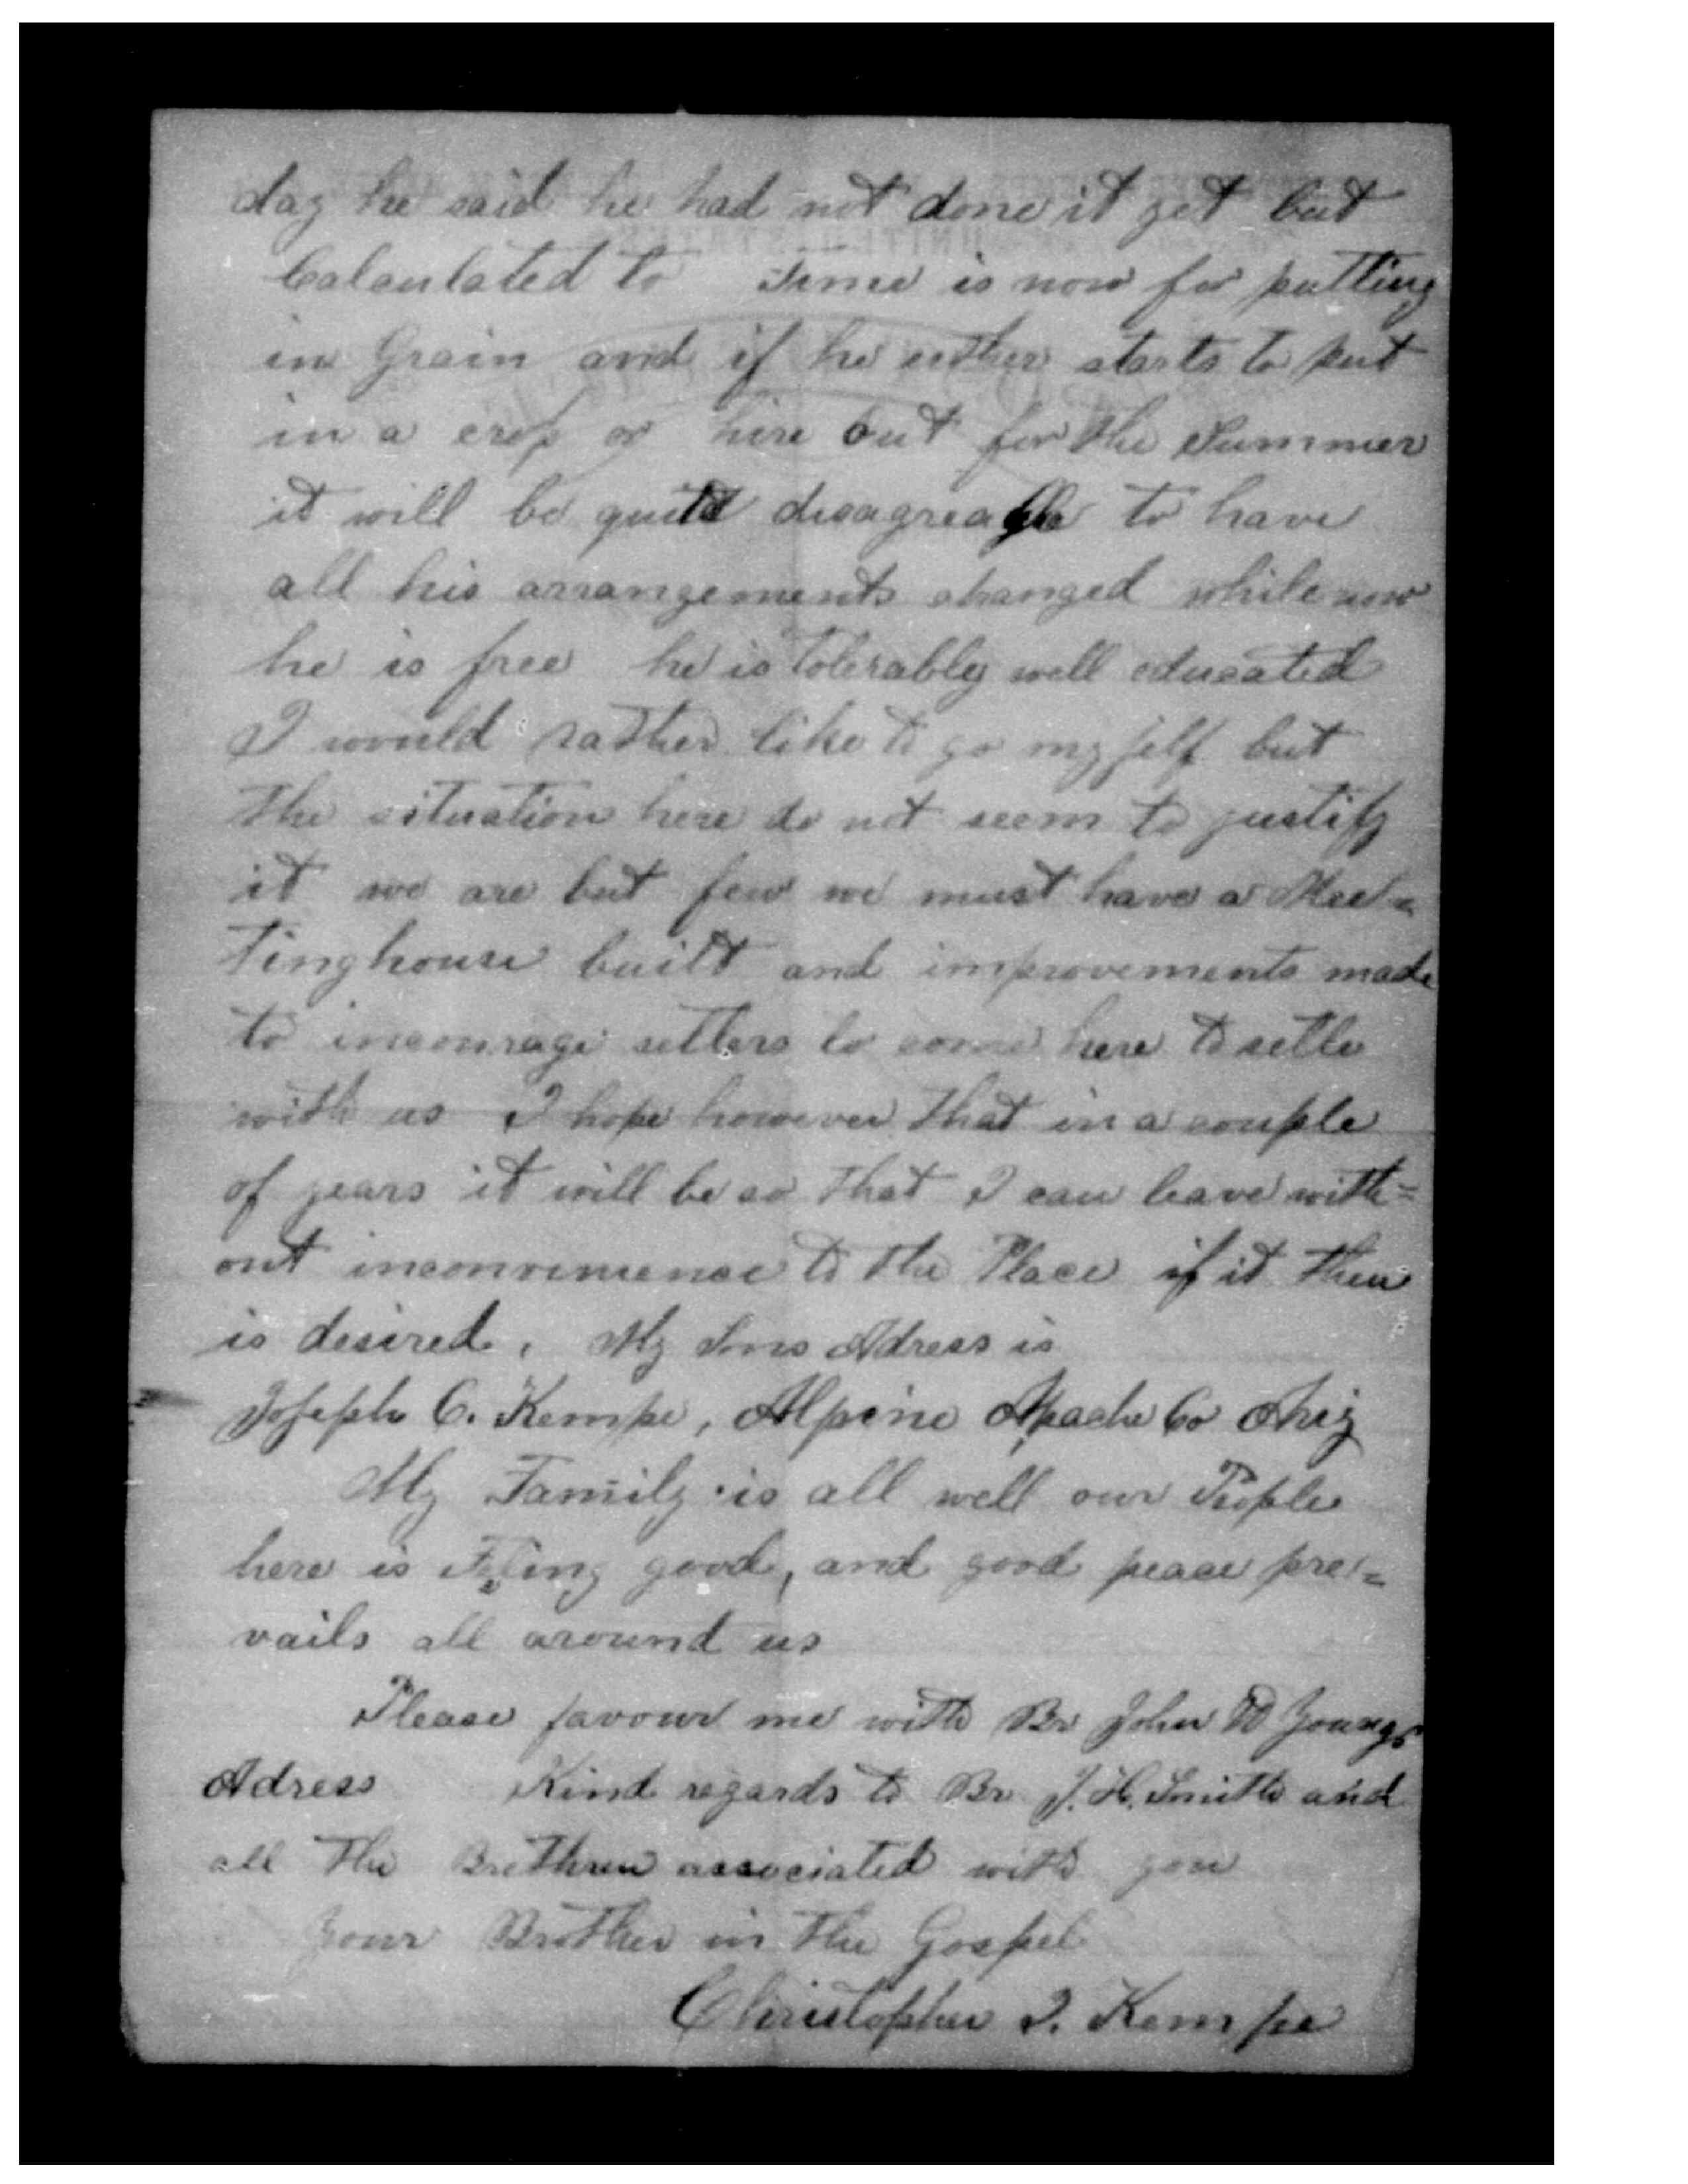 day he said he had not done it yet but
Calculated to Time is now for putting
in Grain and if he either starts to put
in a crop or hire out for the Summer
it will be quite disagreable to have
all his arrangements changed while now
he is free he is tolerably well educated
I would rather like to go myself but
the situation here do not seem to justify
it we are but few we must have a Meet=
tinghouse built and improvements made
to incourage setlers to come here to setle
with us I hope however that in a couple
of years it will be so that I can leave with=
out inconvenience to the Place if it then
is desired. My Sons Adress is
Joseph C. Kempe, Alpine Apache Co Ariz
My Family is all well our People
here is Feling good, and good peace pre=
vails all around us
Please favour me with Br John W Youngs
Adress Kind regards to Br J. H. Smith and
all the Brethren associated with you
Your Brother in the Gospel
Christopher J. Kempe